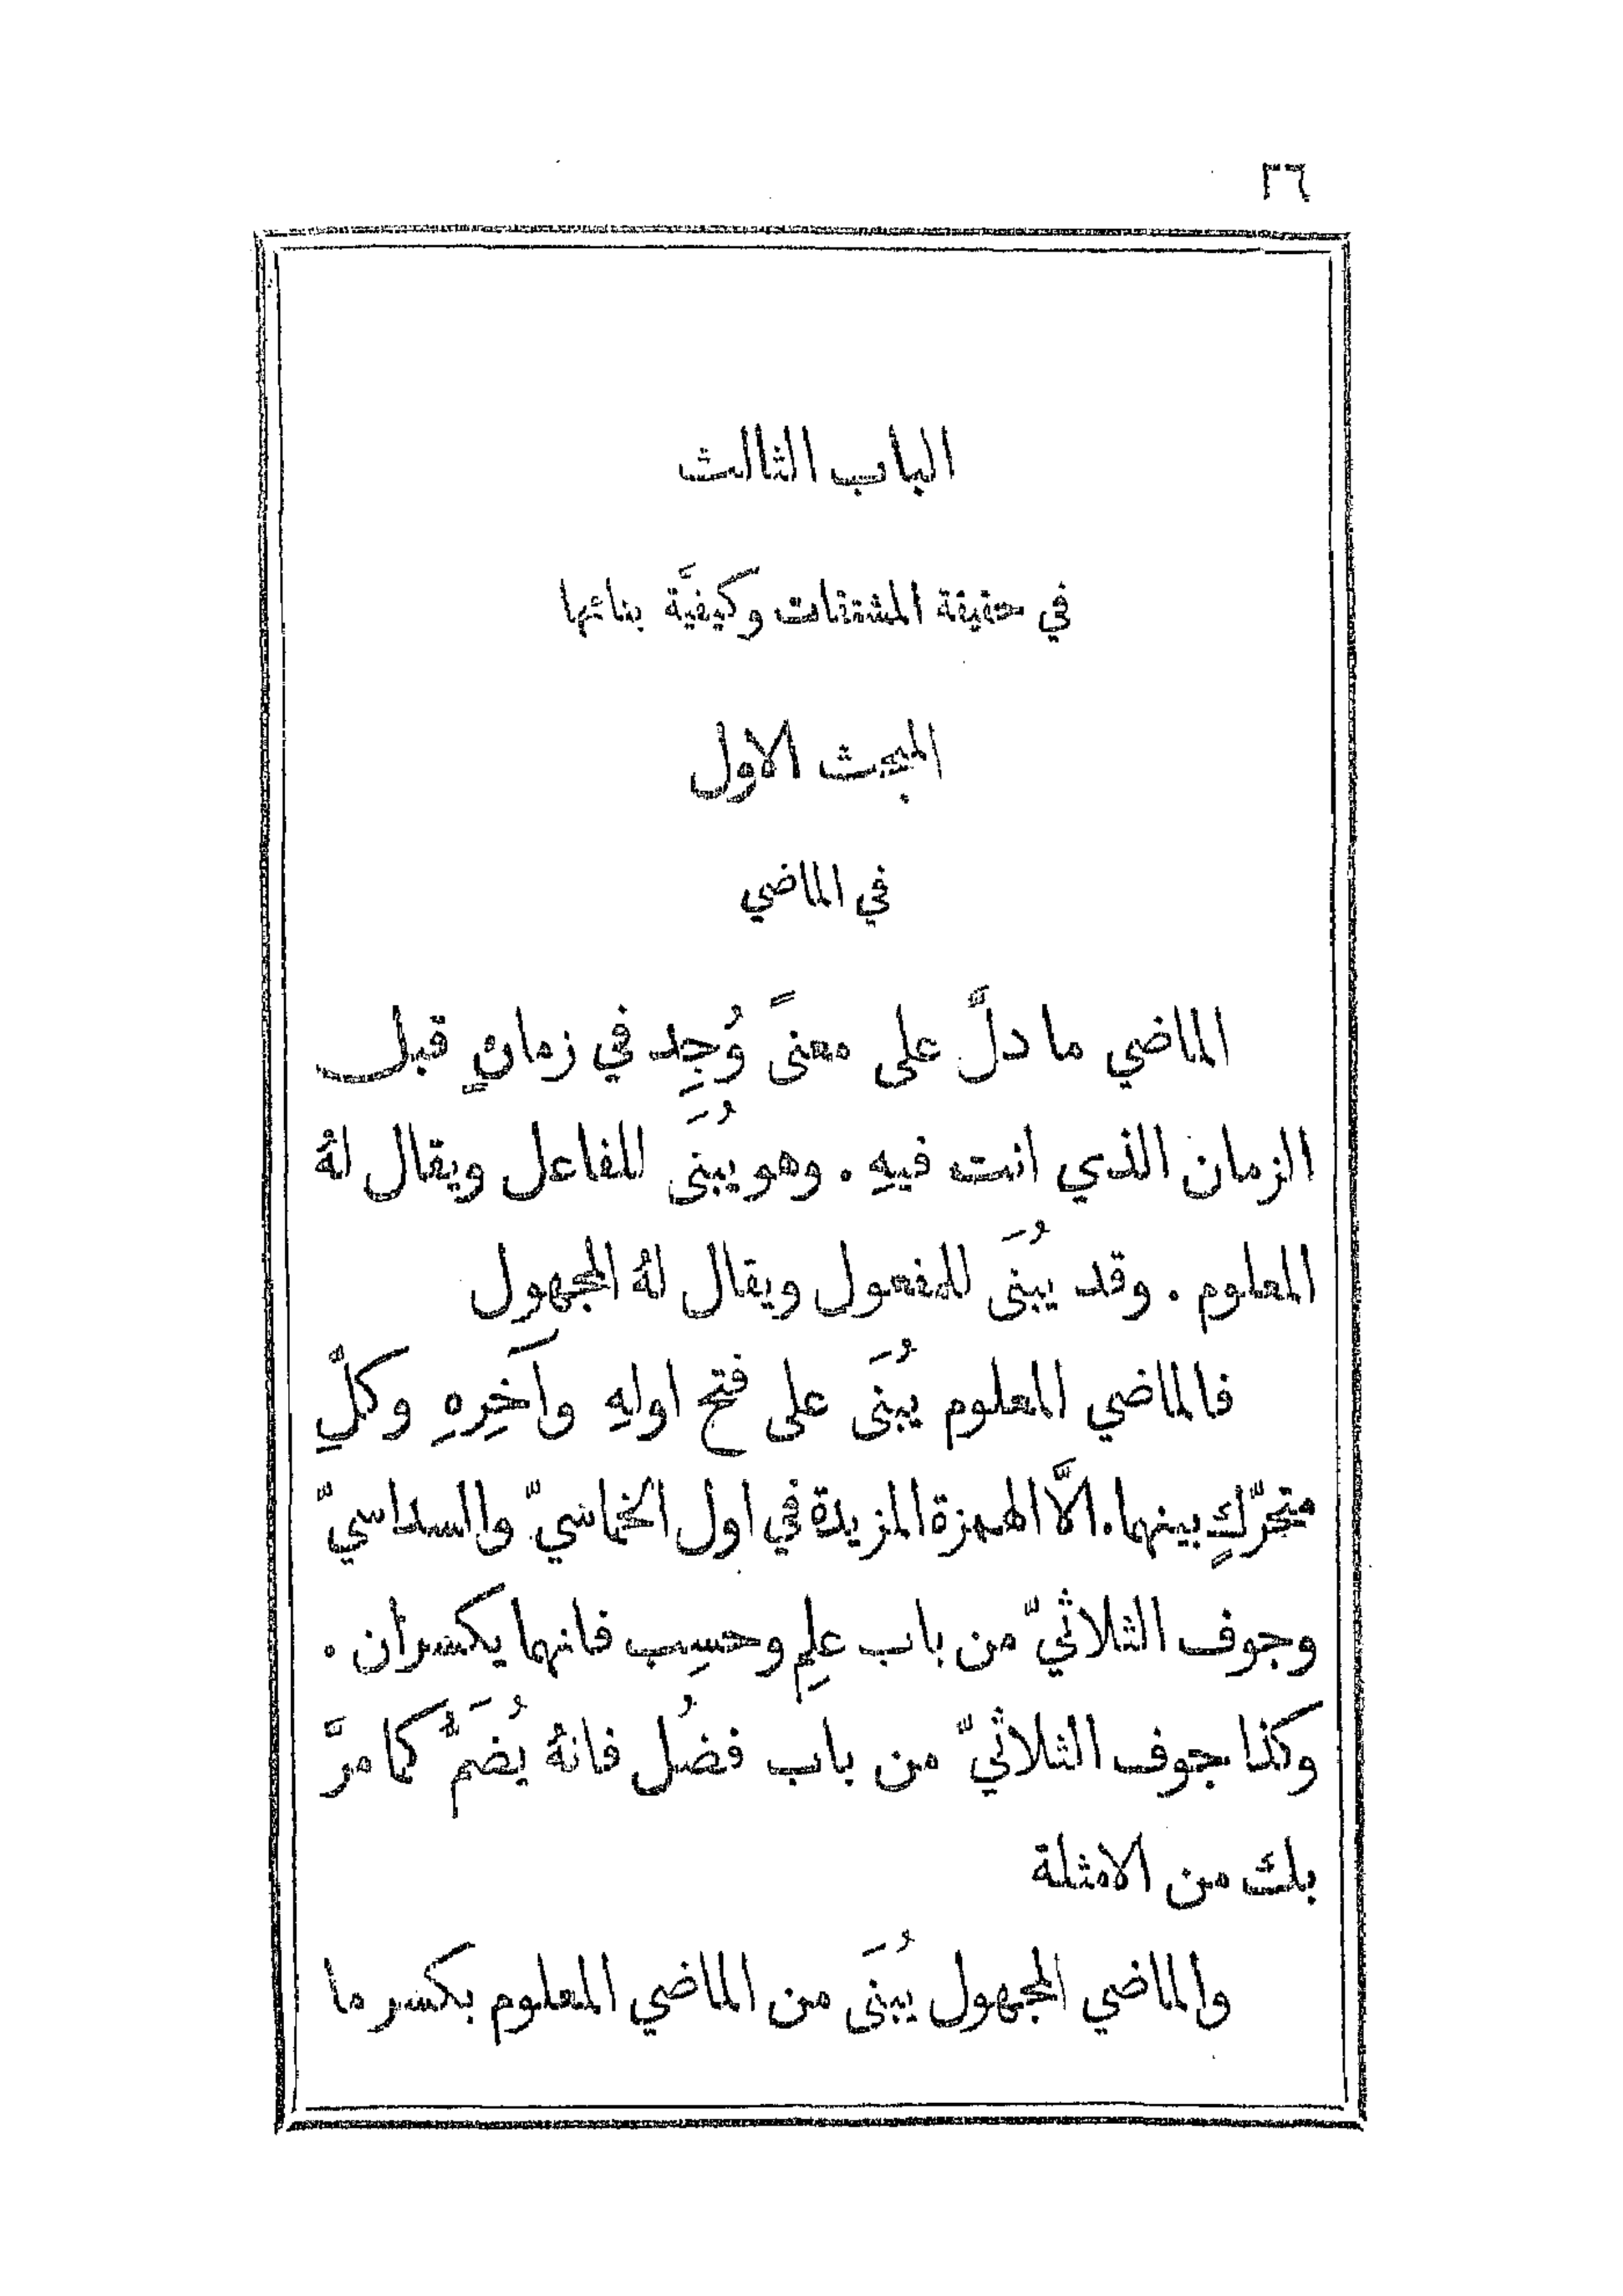 ٢٦
الباب الثالث
في حقيقة المشتقات وكيفيَّة بنائها
المبحث الاول
في الماضي
الماضي ما دلَّ على معنىً وُجِد في زمانٍ قبل
الزمان الذي انت فيهِ . وهو يُبنَى للفاعل ويقال لهُ
المعلوم . وقد يُبنَى للمفعول ويقال لهُ المجهول
فالماضي المعلوم يُبنَى على فتح اولهِ وآخِرِهِ وكلِّ
متحرّكٍ بينهما. الَّا الهمزة المزيدة في اول الخماسيّ والسداسيّ
وجوف الثلاثيّ من باب علِم وحسِب فانهما يكسران .
وكذا جوف الثلاثيّ من باب فضُل فانهُ يُضَمُّ كما مرَّ
بك من الامثلة
والماضي المجهول يُبنَى من الماضي المعلوم بكسر ما